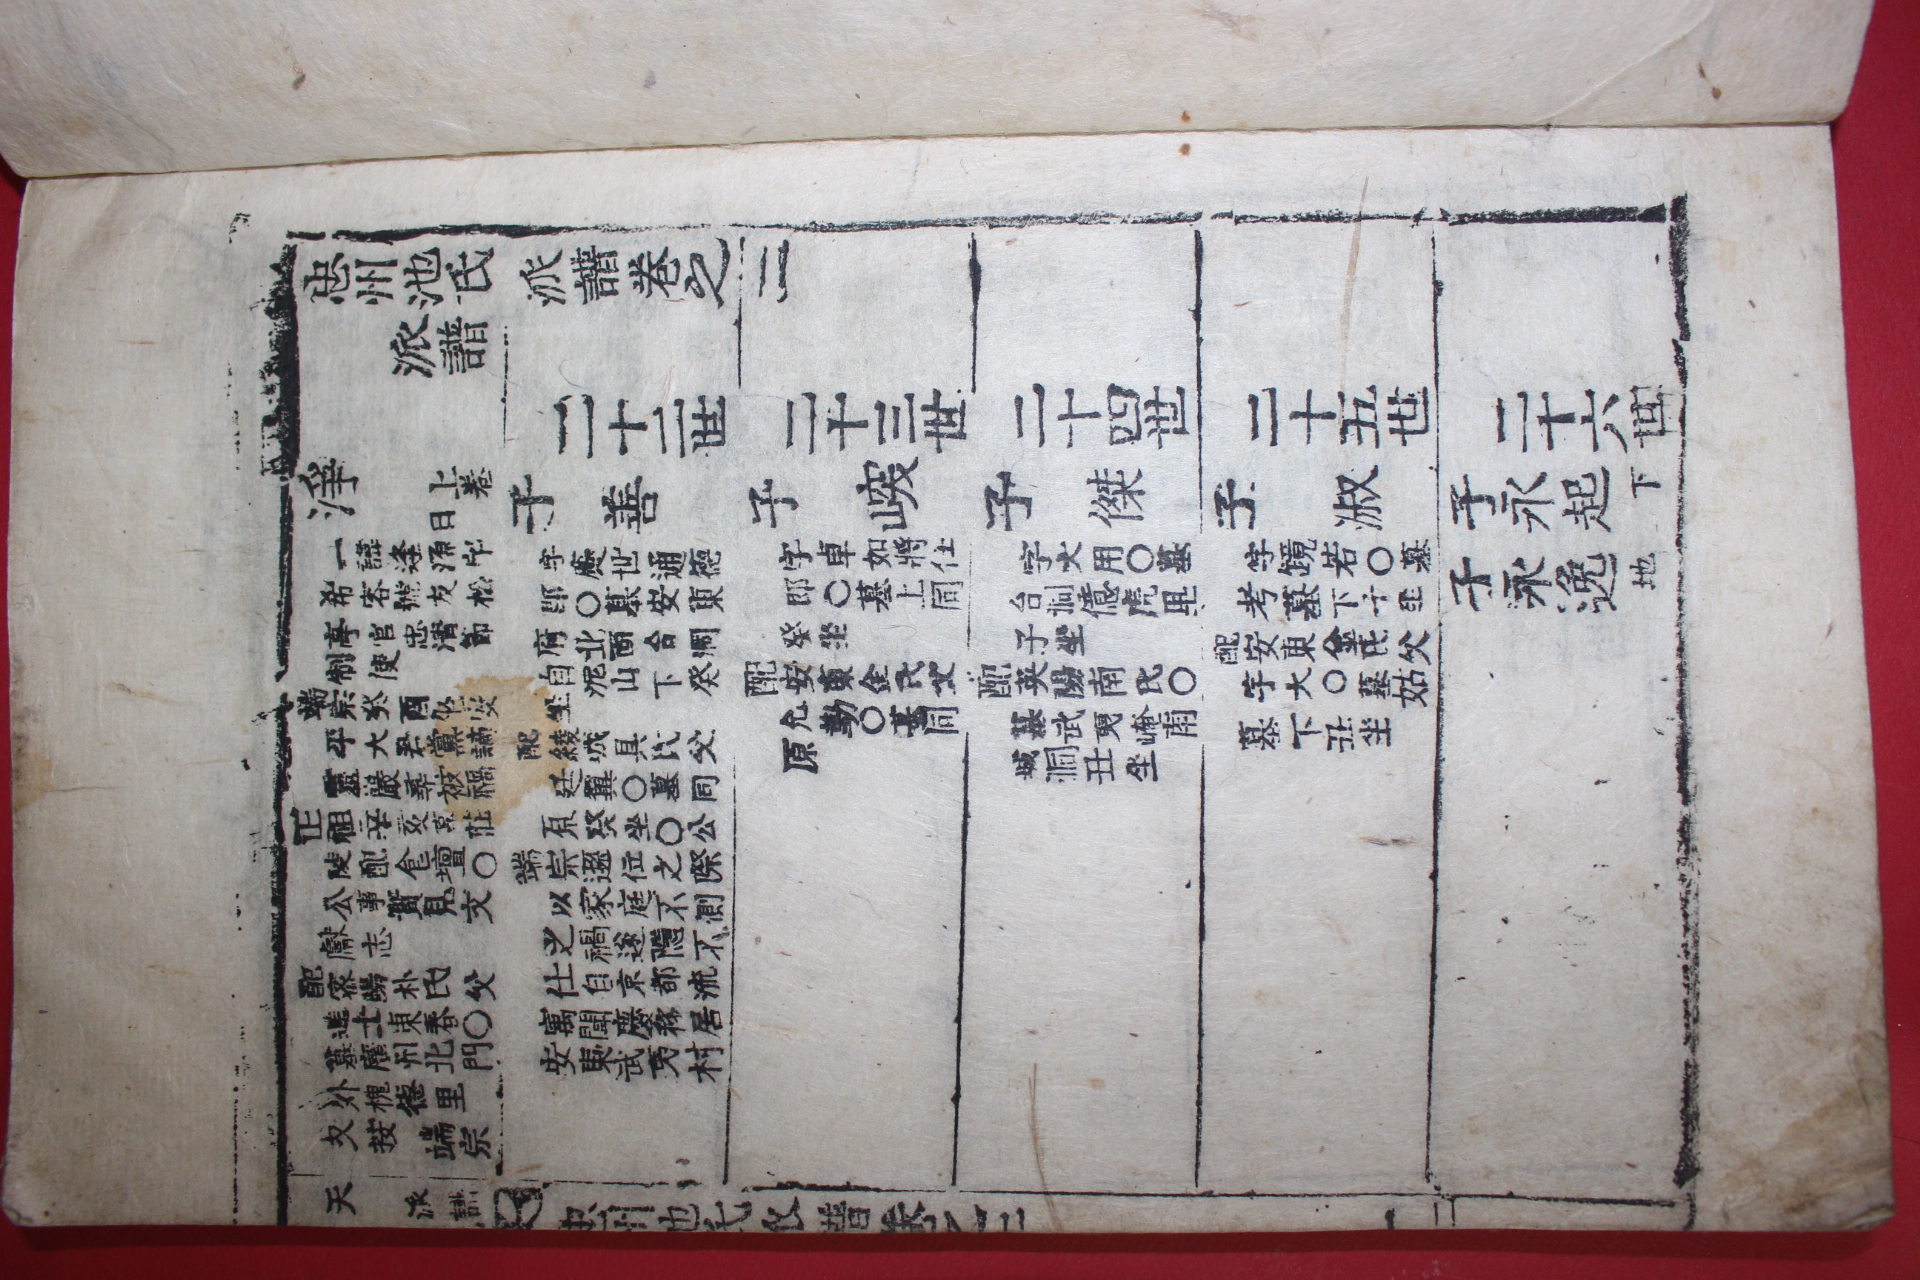 忠州池氏派譜卷之三
派譜
二十二世
二十三世
二十四世
二十五世
二十六世
淨
上卷
日
一諱逢源字
希容號友松
亭官忠淸節
制使
端宗癸酉以安
平大君黨謫
靈嚴尋被禍
正祖辛亥享莊
陵配食壇○
公事實見文
獻志
配密陽朴氏父
進士東春○
墓廣州北門
外槐德里
又按 端宗
子善
字慶世通德
郎○墓安東
府北面台洞
自泥山下癸
坐
配綾城具氏父
廷翼○墓同
原癸坐○公
端宗遜位之際
以家庭不測
之禍遂隱不
仕自京都流
寓聞慶移居
安東武夷村
子㟮
字卓如將仕
郎○墓上同
癸坐
配安東金氏父
允勤○墓同
原
子傑
字大用○墓
台洞億虎里
子坐
配英陽南氏○
墓武夷崦南
城洞丑坐
子淑
字鏡若○墓
考墓下子坐
配安東金氏父
宇大○墓姑
墓下丑坐
子永起
下
子永逸
地
天 派譜
忠州池氏派譜卷之三
一